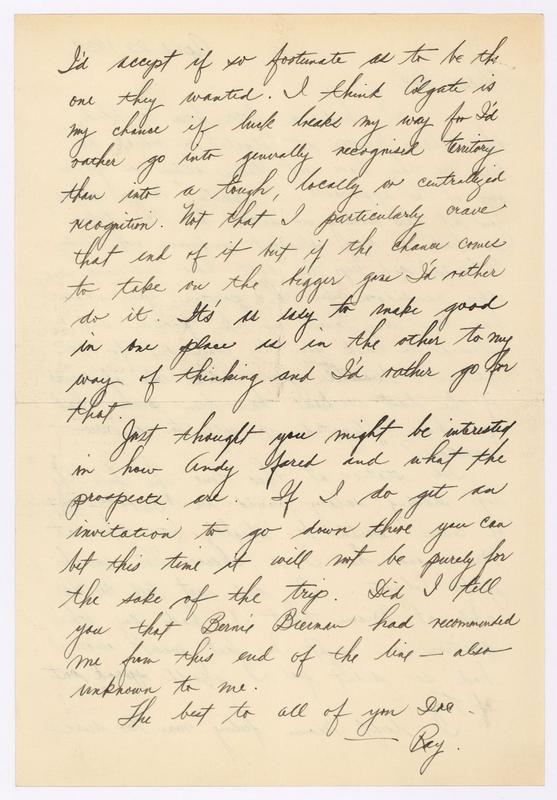 I'd accept if so fortunate as to be the
one they wanted. I think Colgate is
my chance if luck breaks my way for I'd
rather go into generally recognised territory
than into a tough, locally or centrallized
recognition. Not that I particularly crave
that end of it but if the chance comes
to take on the bigger game I'd rather
do it. It's as easy to make good
in one place as in the other to my
way of thinking and I'd rather go for
that.
Just thought you might be interested
in how Andy fared and what the
prospects are. If I do get an
invitation to go down there you can
bet this time it will not be purely for
the sake of the trip. Did I tell
you that Bernie Bierman had recommended
me from this end of the line — also
unknown to me.
The best to all of you Doc.
— Ray.